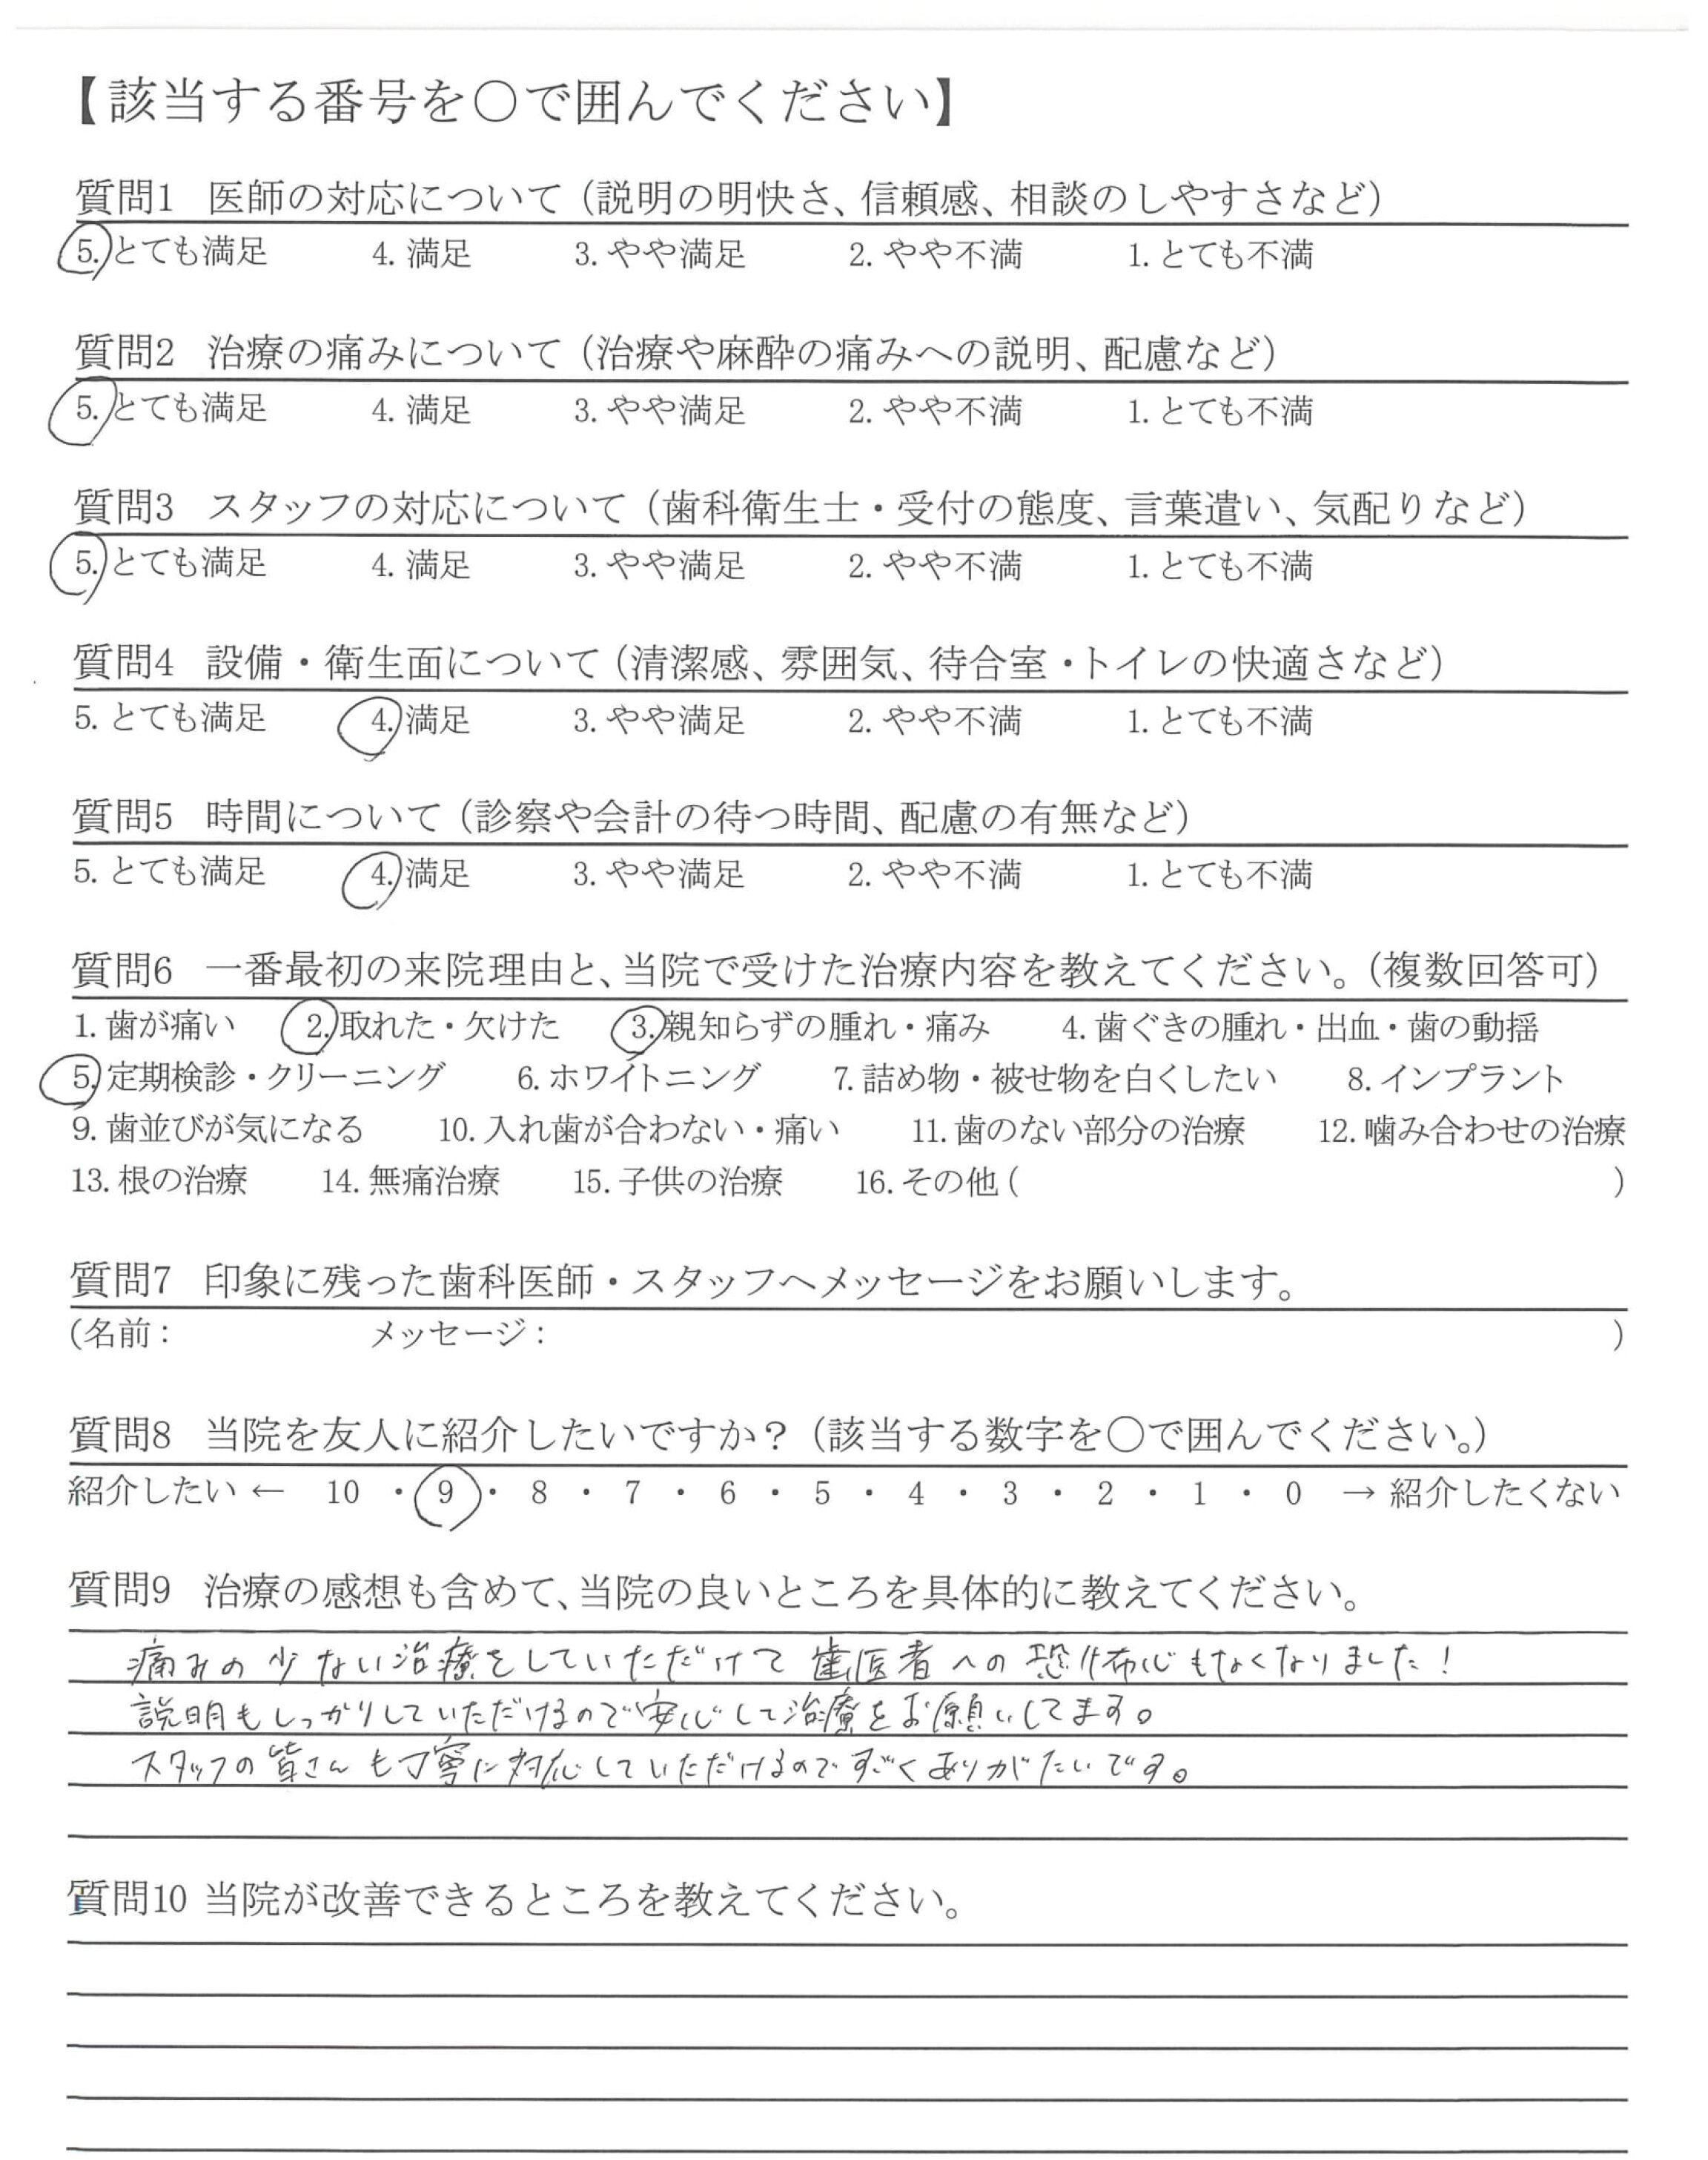 【該当する番号を○で囲んでください】
質問1 医師の対応について（説明の明快さ、信頼感、相談のしやすさなど）
5. とても満足 4. 満足 3. やや満足 2. やや不満 1. とても不満
質問2 治療の痛みについて（治療や麻酔の痛みへの説明、配慮など）
5. とても満足 4. 満足 3. やや満足 2. やや不満 1. とても不満
質問3 スタッフの対応について（歯科衛生士・受付の態度、言葉遣い、気配りなど）
5. とても満足 4. 満足 3. やや満足 2. やや不満 1. とても不満
質問4 設備・衛生面について（清潔感、雰囲気、待合室・トイレの快適さなど）
5. とても満足 4. 満足 3. やや満足 2. やや不満 1. とても不満
質問5 時間について（診察や会計の待つ時間、配慮の有無など）
5. とても満足 4. 満足 3. やや満足 2. やや不満 1. とても不満
質問6 一番最初の来院理由と、当院で受けた治療内容を教えてください。（複数回答可）
1. 歯が痛い 2. 取れた・欠けた 3. 親知らずの腫れ・痛み 4. 歯ぐきの腫れ・出血・歯の動揺
5. 定期検診・クリーニング 6. ホワイトニング 7. 詰め物・被せ物を白くしたい 8. インプラント
9. 歯並びが気になる 10. 入れ歯が合わない・痛い 11. 歯のない部分の治療 12. 噛み合わせの治療
13. 根の治療 14. 無痛治療 15. 子供の治療 16. その他（ ）
質問7 印象に残った歯科医師・スタッフへメッセージをお願いします。
（名前： メッセージ： ）
質問8 当院を友人に紹介したいですか？（該当する数字を○で囲んでください。）
紹介したい ← 10 ・ 9 ・ 8 ・ 7 ・ 6 ・ 5 ・ 4 ・ 3 ・ 2 ・ 1 ・ 0 → 紹介したくない
質問9 治療の感想も含めて、当院の良いところを具体的に教えてください。
痛みの少ない治療をしていただけて歯医者への恐怖心もなくなりました！
説明もしっかりしていただけるので安心して治療をお願いしてます。
スタッフの皆さんも丁寧に対応していただけるのですごくありがたいです。
質問10 当院が改善できるところを教えてください。